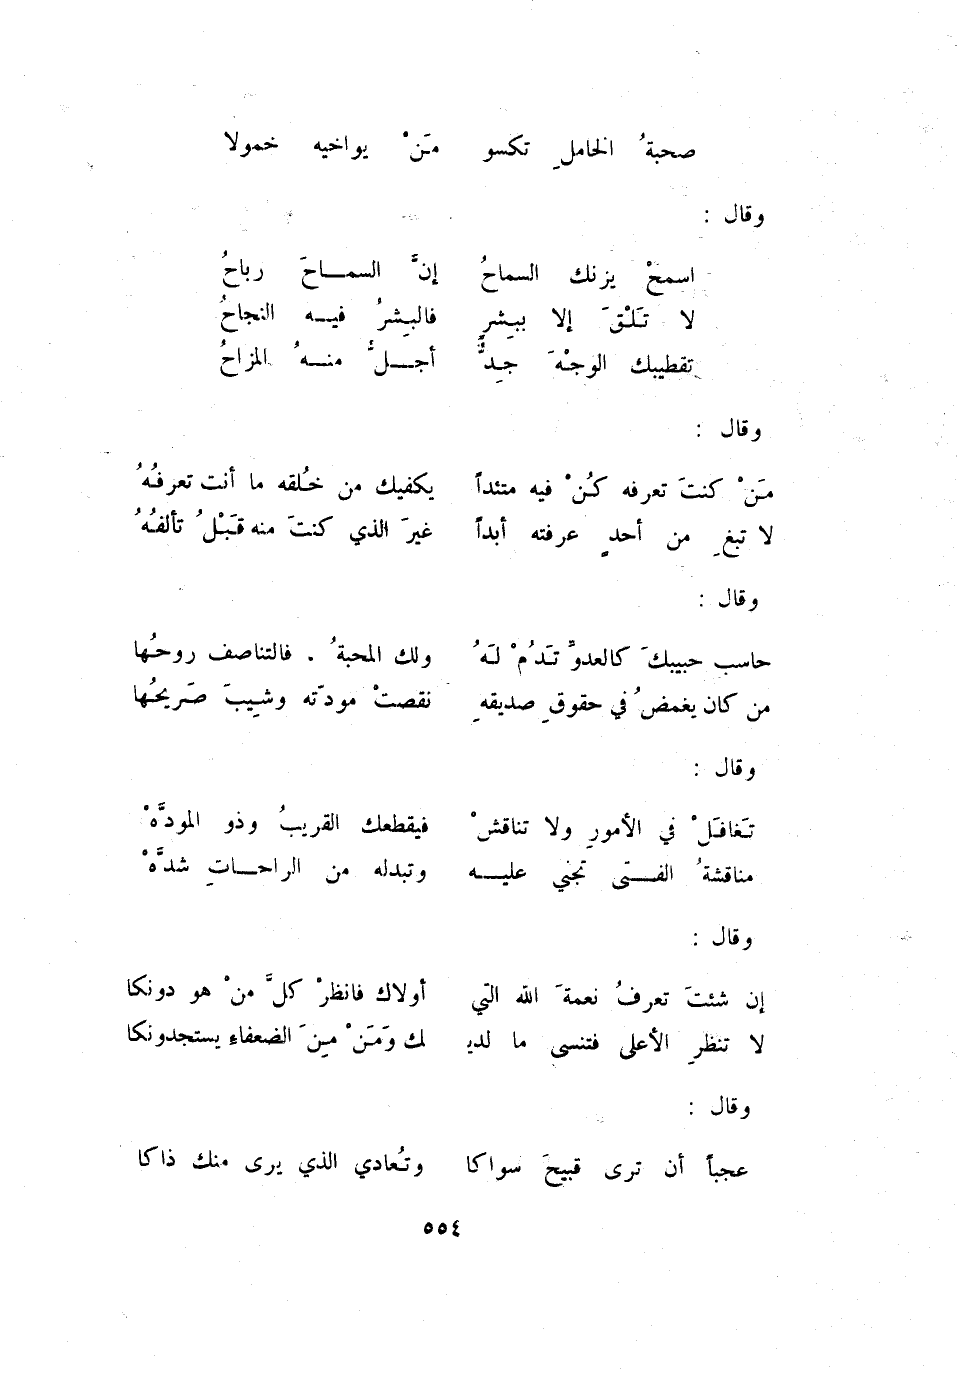 صحبةُ الخاملِ تكسو مَنْ يواخيه خمولا
وقال :
اسمحْ يزنك السماحُ إنَّ السمـاحَ رباحُ
لا تَلْقَ إلا ببِشرٍ فالبِشرُ فيـه النجاحُ
تقطيبك الوجْهَ جِدٌّ أجـلُّ منـهُ المزاحُ
وقال :
مَنْ كنتَ تعرفه كُنْ فيه متئداً يكفيك من خُلقه ما أنت تعرفُهُ
لا تبغِ من أحدٍ عرفته أبداً غيرَ الذي كنتَ منه قَبْلُ تألفُهُ
وقال :
حاسب حبيبكَ كالعدوِّ تَدُمْ لَهُ ولك المحبةُ . فالتناصف روحُها
من كان يغمضُ في حقوقِ صديقهِ نقصتْ مودّته وشِيبَ صَريحُها
وقال :
تَغافَلْ في الأمورِ ولا تناقشْ فيقطعك القريبُ وذو المودَّهْ
مناقشةُ الفـتى تجني عليـه وتبدله من الراحـاتِ شدَّهْ
وقال :
إن شئتَ تعرفُ نعمةَ الله التي أولاك فانظرْ كلَّ منْ هو دونكا
لا تنظرِ الأعلى فتنسى ما لديـ ـك وَمَنْ مِنَ الضعفاء يستجدونكا
وقال :
عجباً أن ترى قبيحَ سواكا وتُعادي الذي يرى منك ذاكا
٥٥٤